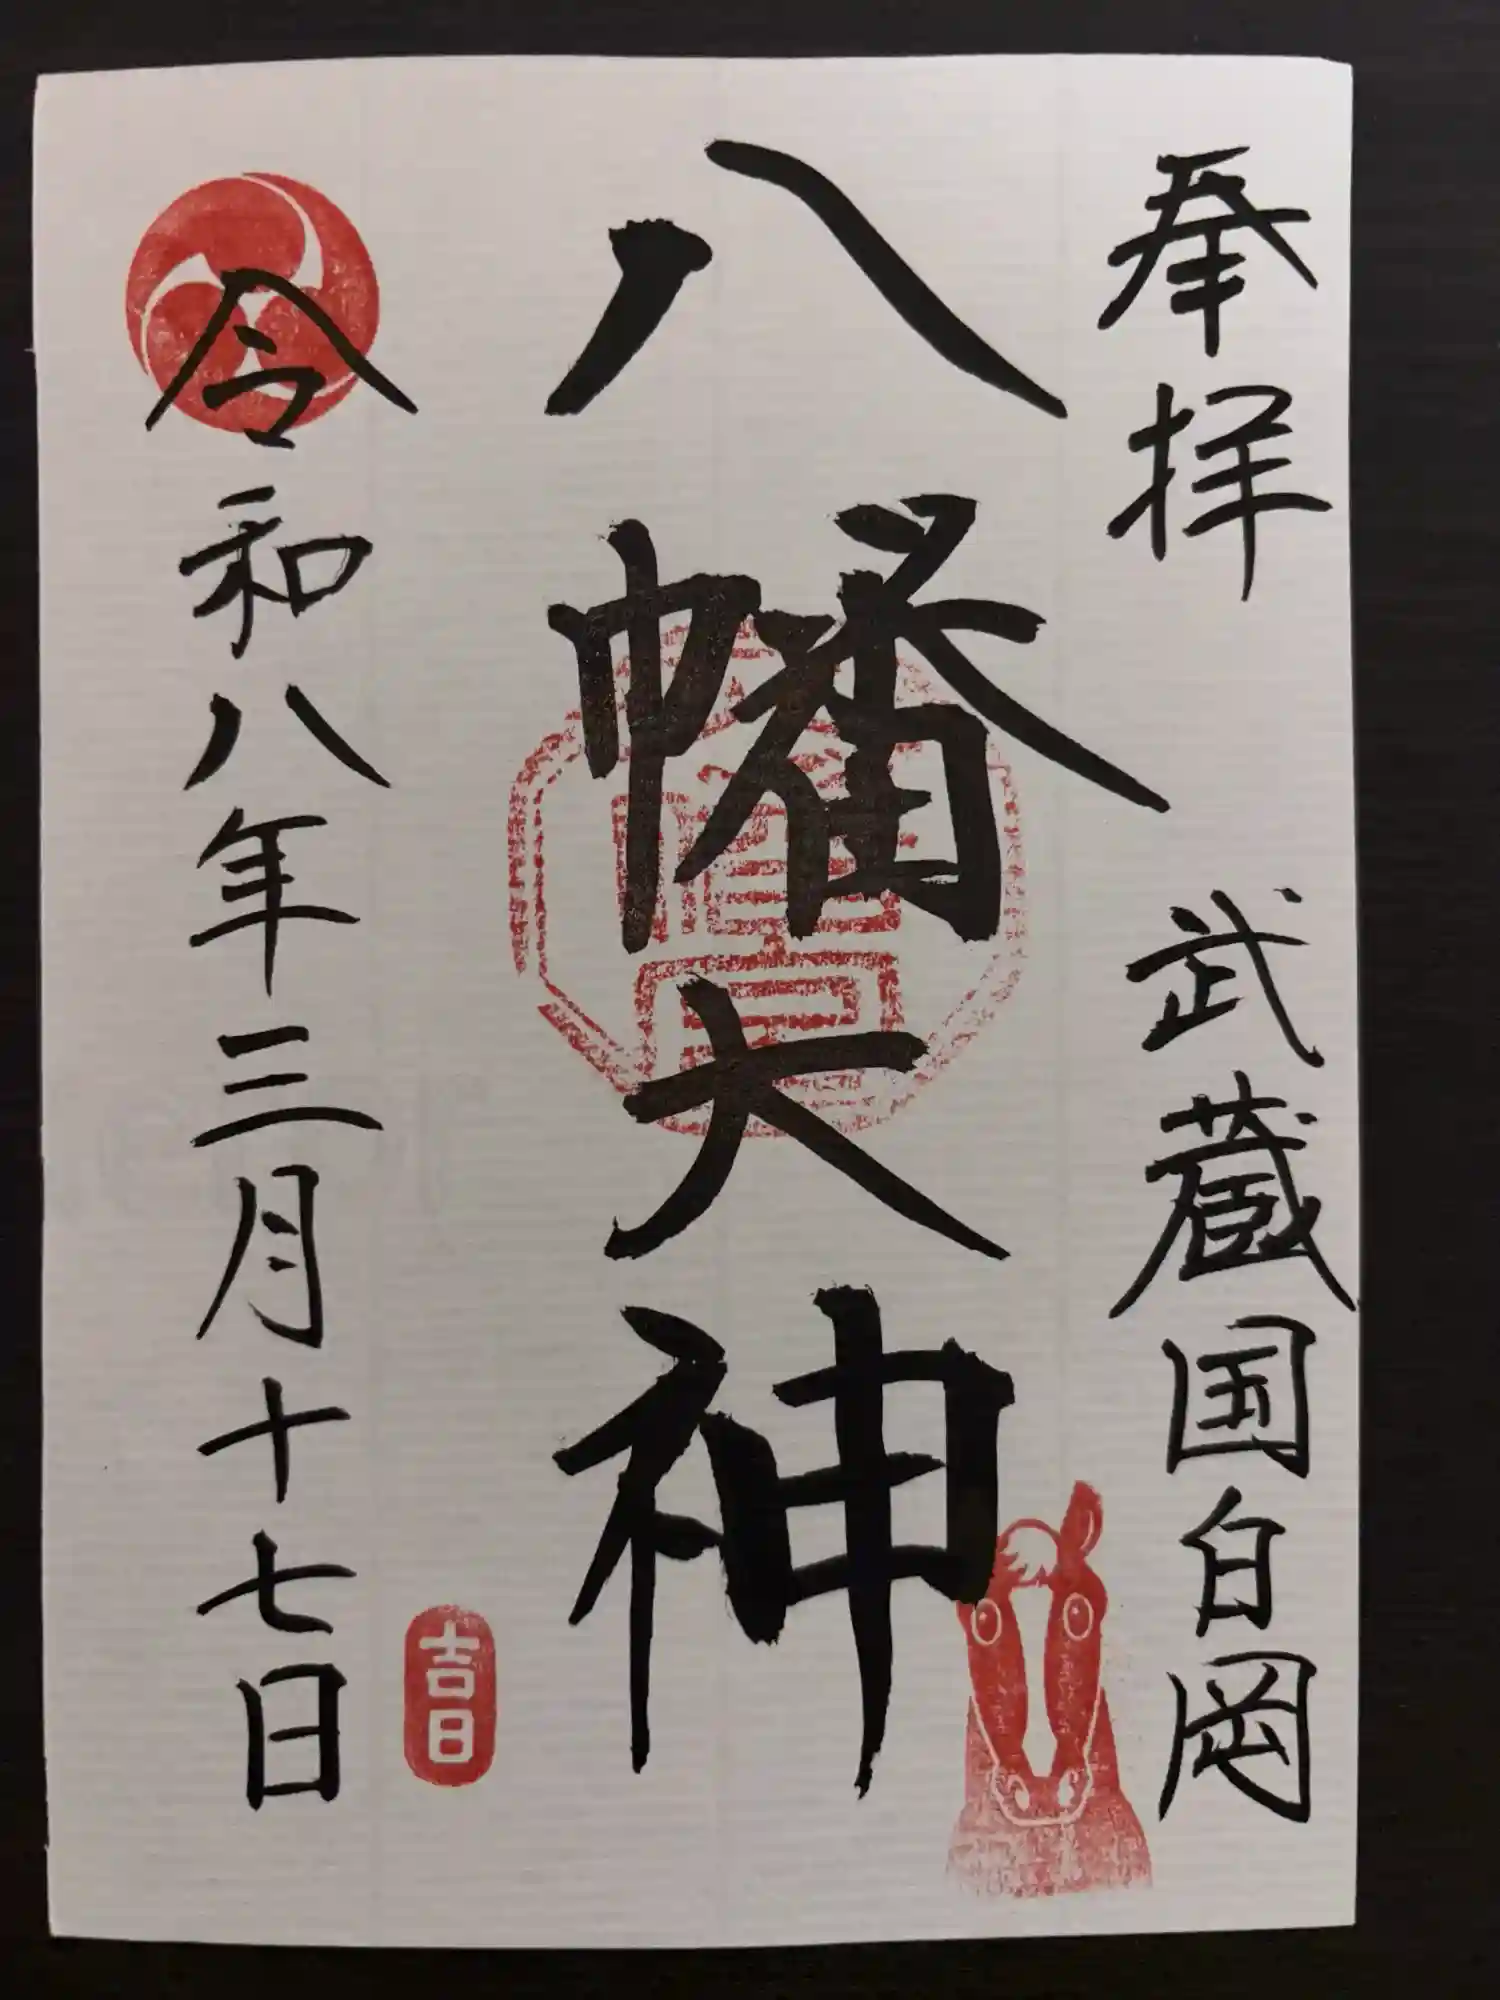 奉拝　武蔵国白岡
八幡大神
令和八年三月十七日
吉日